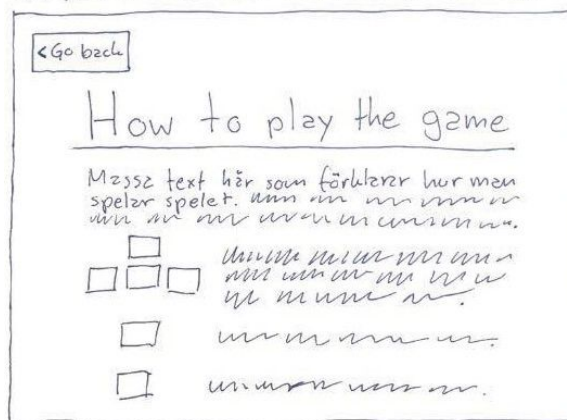 <Go back
How to play the game
Massa text här som förklarar hur man
spelar spelet.